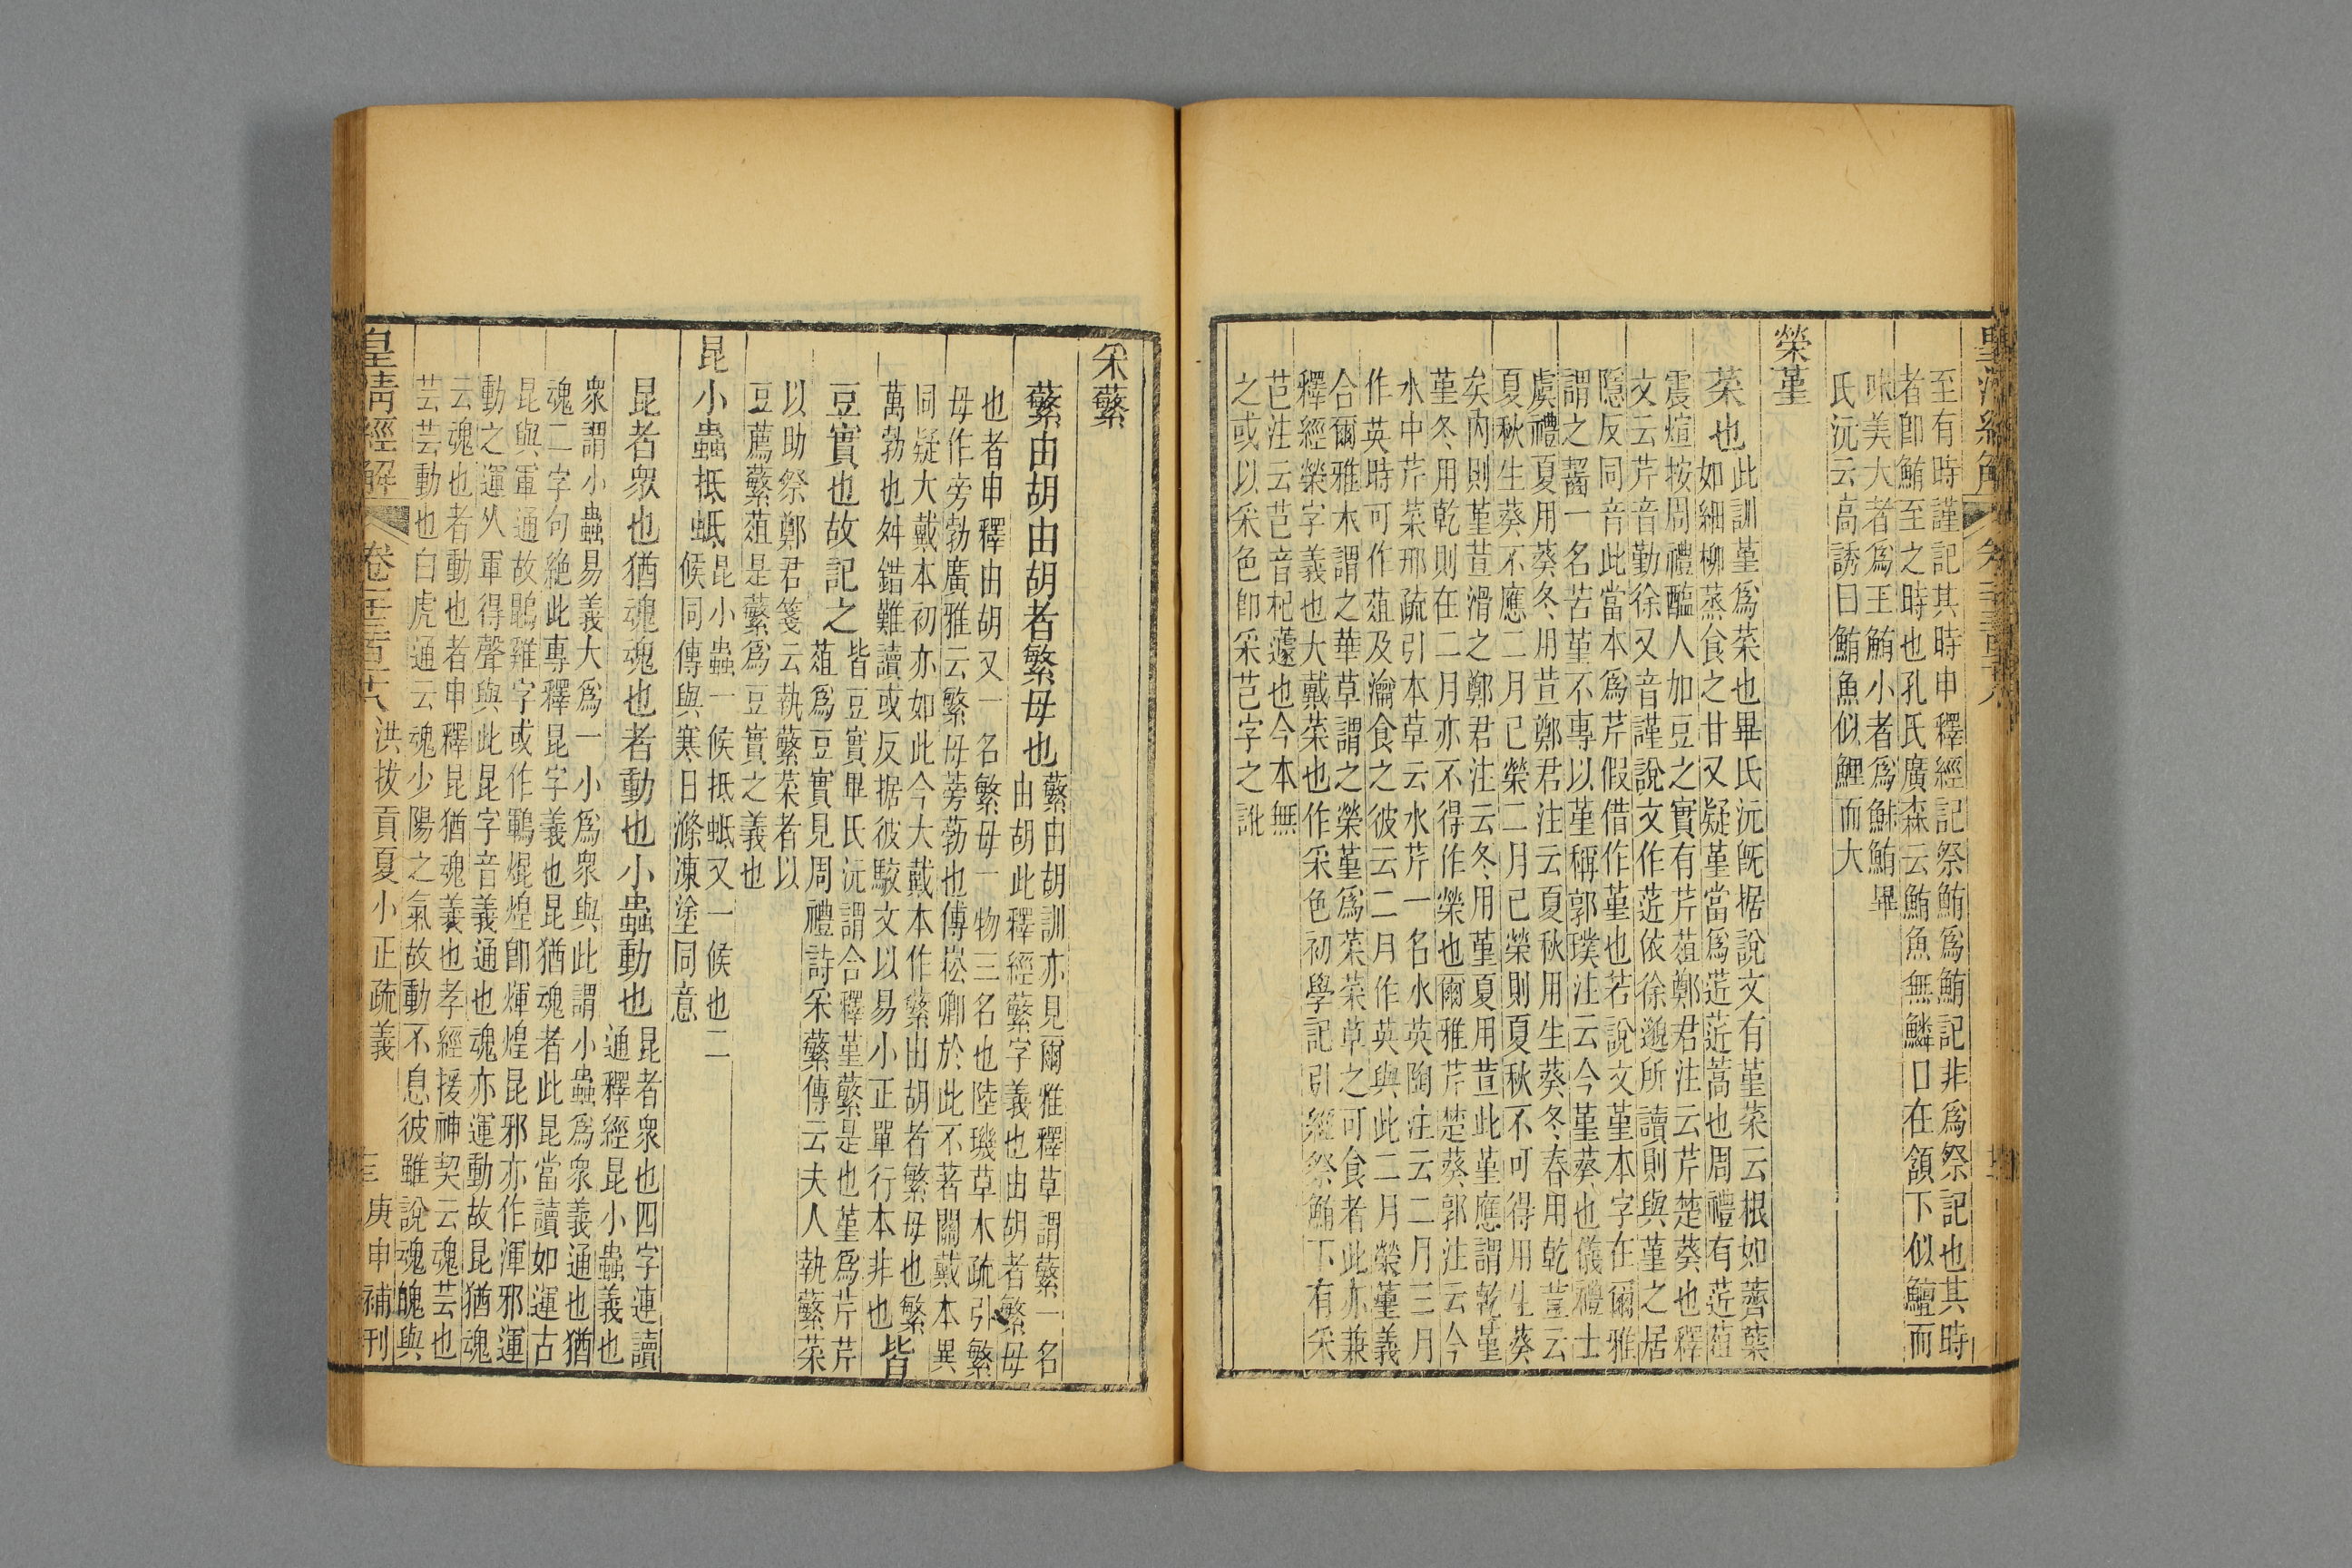 至有時謹記其時申釋經記祭鮪爲鮪記非爲祭記也其時
者卽鮪至之時也孔氏廣森云鮪魚無鱗口在頷下似鱣而
味美大者爲王鮪小者爲鮛鮪畢
氏沅云高誘曰鮪魚似鯉而大
榮菫
菜也
此訓菫爲菜也畢氏沅旣据說文有菫菜云根如薺葉
如細柳蒸食之甘又疑菫當爲䒢䒢蒿也周禮有䒢菹
震煊按周禮醢人加豆之實有芹菹鄭君注云芹楚葵也釋
文云芹音勤徐又音謹說文作䒢依徐邈所讀則與菫之居
隱反同音此當本爲芹假借作菫也若說文菫本字在爾雅
謂之齧一名苦菫不專以菫稱郭璞注云今菫葵也儀禮士
虞禮夏用葵冬用荁鄭君注云夏秋用生葵冬春用乾荁云
夏秋生葵不應二月已榮二月已榮則夏秋不可得用生葵
矣內則菫荁滑之鄭君注云冬用菫夏用荁此菫應謂乾菫
菫冬用乾則在二月亦不得作榮也爾雅芹楚葵郭注云今
水中芹菜邢疏引本草云水芹一名水英陶注云二月三月
作英時可作菹及瀹食之彼云二月作英與此二月榮菫義
合爾雅木謂之華草謂之榮菫爲菜菜草之可食者此亦兼
釋經榮字義也大戴菜也作采色初學記引經祭鮪下有采
芑注云芑音杞蘧也今本無
之或以采色卽采芑字之訛
采蘩
蘩由胡由胡者繁母也
蘩由胡訓亦見爾雅釋草謂蘩一名
由胡此釋經蘩字義也由胡者繁母
也者申釋由胡又一名繁母一物三名也陸璣草木疏引繁
母作旁勃廣雅云繁母蒡葧也傅崧卿於此不著關戴本異
同疑大戴本初亦如此今大戴本作蘩由胡者繁母也繁
萬勃也舛錯難讀或反据彼駮文以易小正單行本非也
皆
豆實也故記之
皆豆實畢氏沅謂合釋菫蘩是也菫爲芹芹
菹爲豆實見周禮詩采蘩傳云夫人執蘩菜
以助祭鄭君箋云執蘩菜者以
豆薦蘩菹是蘩爲豆實之義也
昆小蟲抵蚳
昆小蟲一候抵蚳又一候也二
候同傳與寒日滌凍塗同意
昆者衆也猶魂魂也者動也小蟲動也
昆者衆也四字連讀
通釋經昆小蟲義也
衆謂小蟲易義大爲一小爲衆與此謂小蟲爲衆義通也猶
魂二字句絶此專釋昆字義也昆猶魂者此昆當讀如運古
昆與軍通故鶤雞字或作鶤焜煌卽煇煌昆邪亦作渾邪運
動之運从軍得聲與此昆字音義通也魂亦運動故昆猶魂
云魂也者動也者申釋昆猶魂義也孝經援神契云魂芸也
芸芸動也白虎通云魂少陽之氣故動不息彼雖說魂魄與
皇清經解
卷
洪拔貢夏小正疏義
庚申補刊